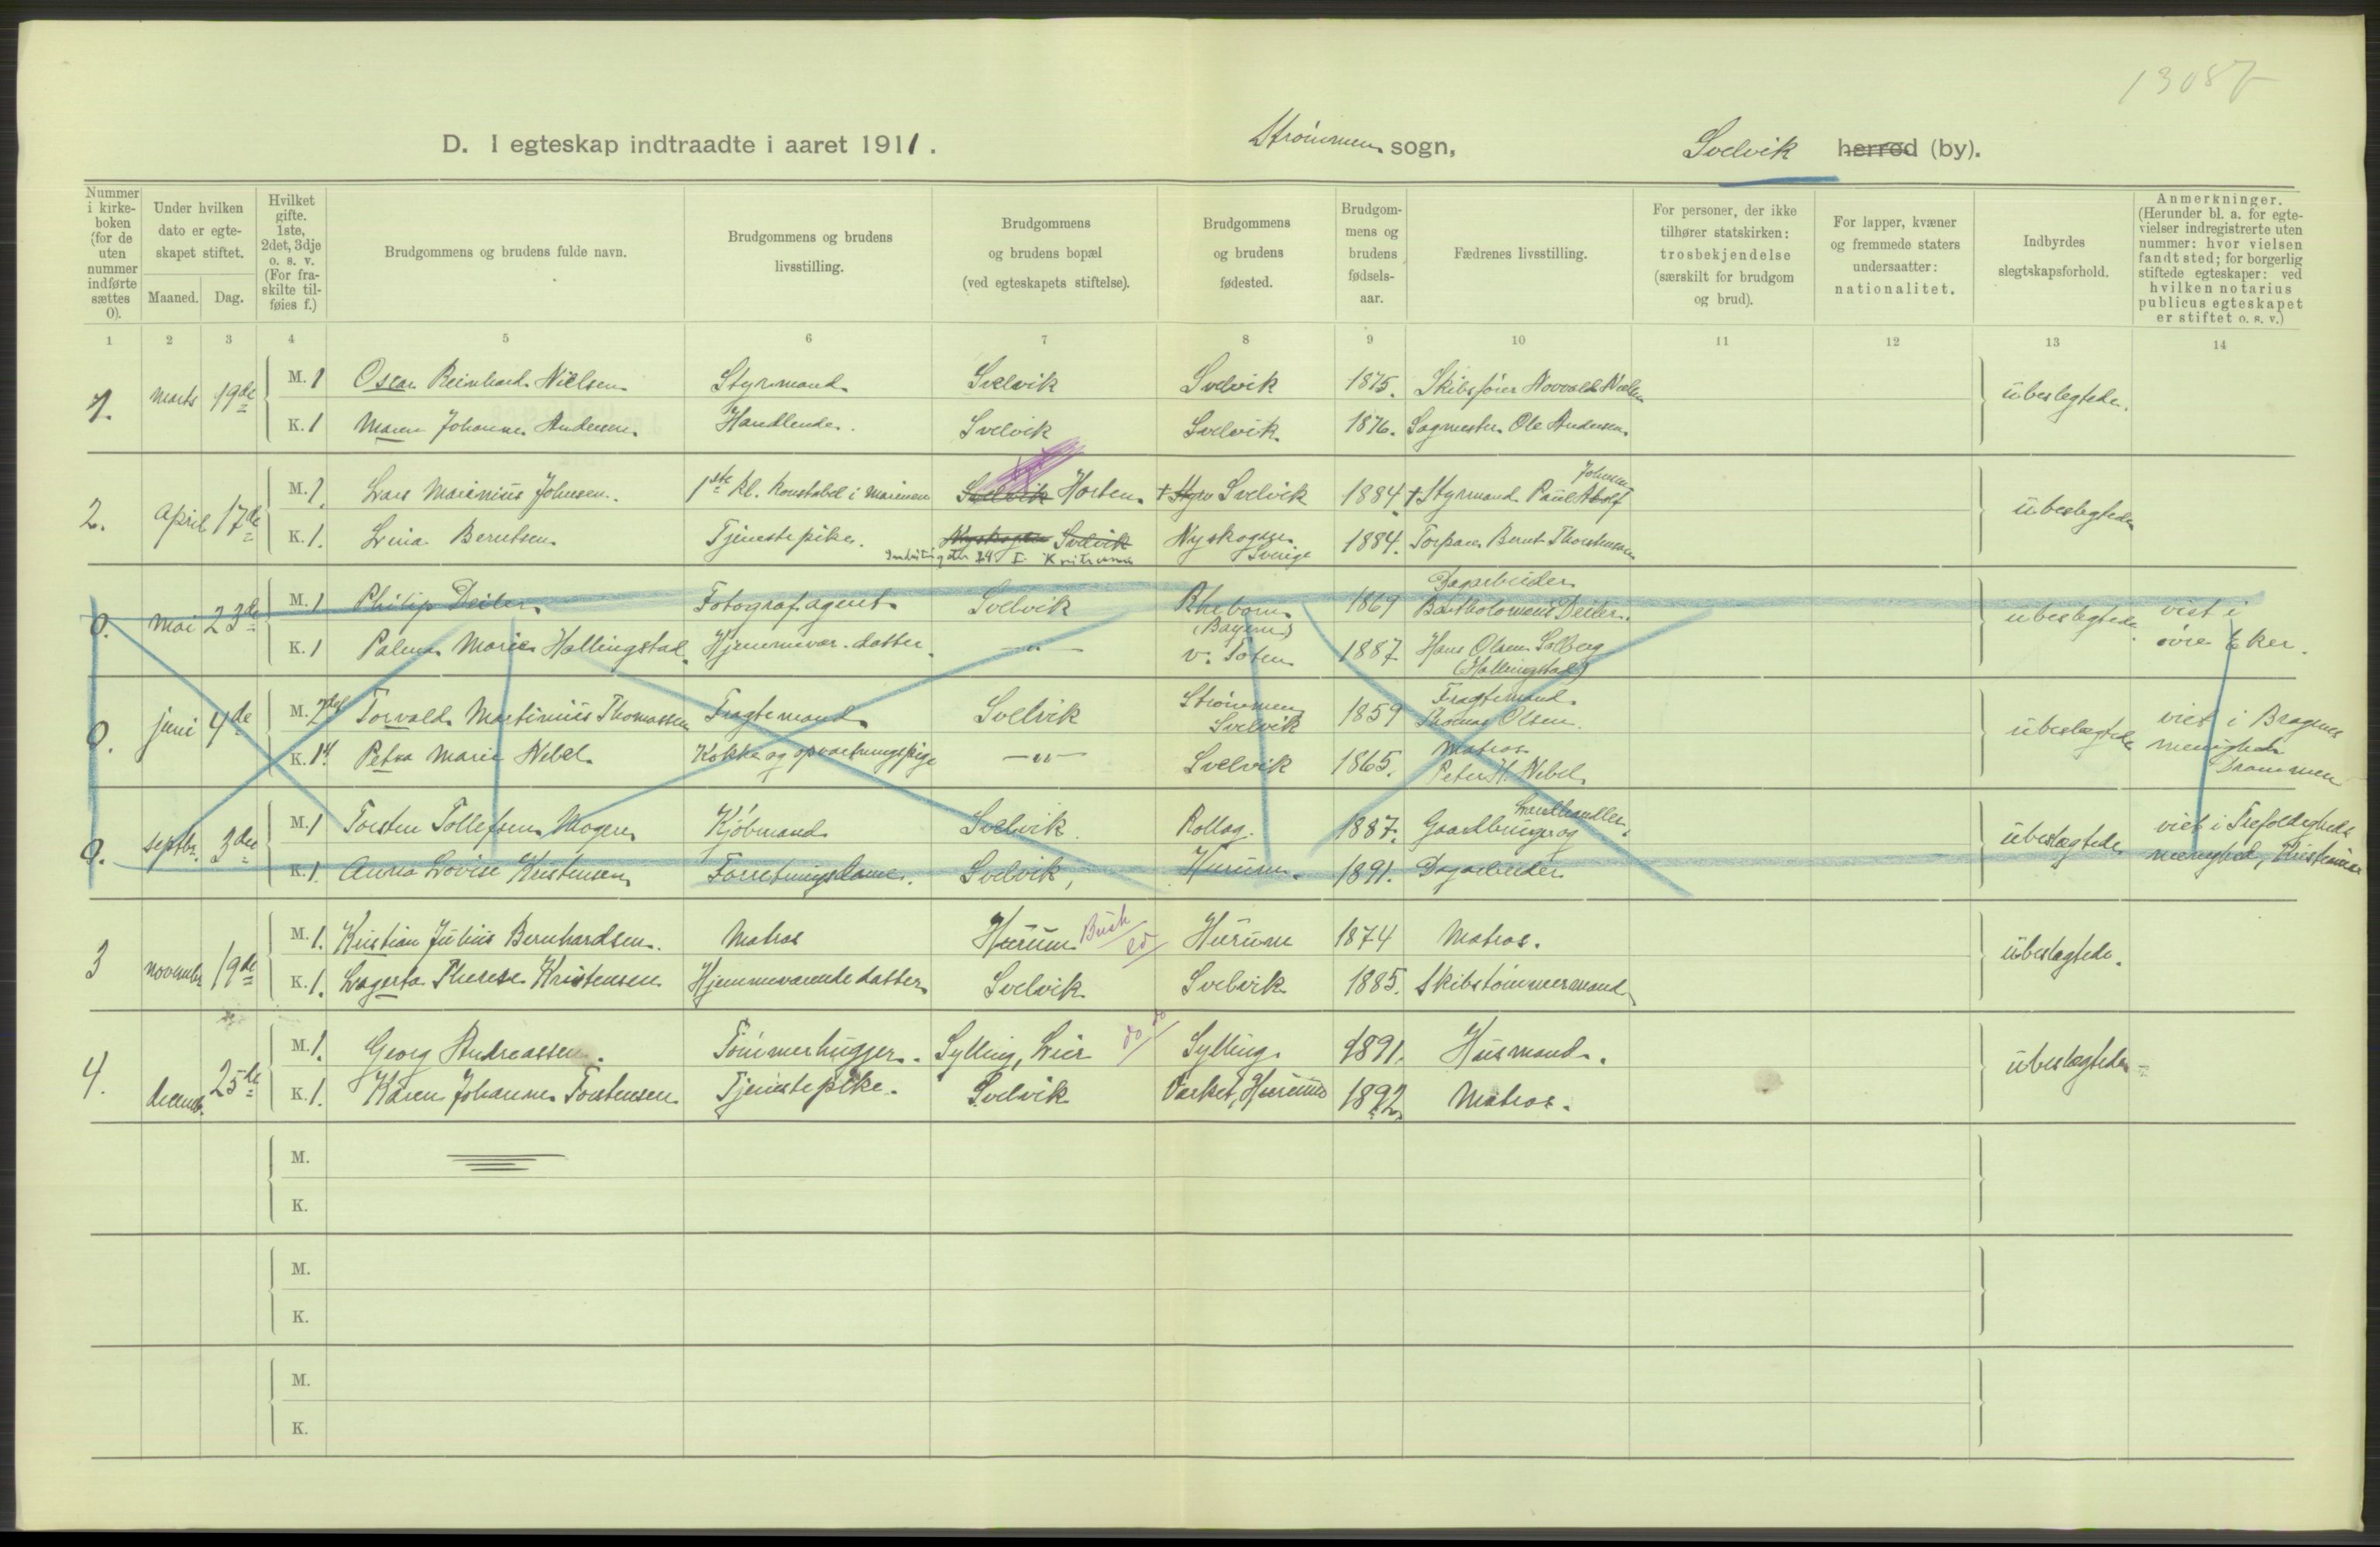 13087
D. I egteskap indtraadte i aaret 1911. Strömmen sogn, Svelvik herred (by).
Nummer i kirkeboken (for de uten nummer indførte sættes 0).
Under hvilken dato er egteskapet stiftet.
Maaned. Dag.
Hvilket gifte. 1ste, 2det, 3dje o. s. v. (For fraskilte tilføies f.)
Brudgommens og brudens fulde navn.
Brudgommens og brudens livsstilling.
Brudgommens og brudens bopæl (ved egteskapets stiftelse).
Brudgommens og brudens fødested.
Brudgommens og brudens fødselsaar.
Fædrenes livsstilling.
For personer, der ikke tilhører statskirken: trosbekjendelse (særskilt for brudgom og brud).
For lapper, kvæner og fremmede staters undersaatter: nationalitet.
Indbyrdes slegtskapsforhold.
Anmerkninger. (Herunder bl. a. for egtevielser indregistrerte uten nummer: hvor vielsen fandt sted; for borgerlig stiftede egteskaper: ved hvilken notarius publicus egteskapet er stiftet o. s. v.)
1 2 3 4 5 6 7 8 9 10 11 12 13 14
1. Marts 19de M. 1 Oscar Reinhard Nielsen Styrmand Svelvik Svelvik 1875. Skibsfører Norvald Nielsen übeslegtede.
K. 1 Maren Johanne Andersen. Handlende. Svelvik Svelvik 1876. Sagmester Ole Andersen
2. April 17de M. 1. Lars Marinius Johnsen. 1ste kl. Konstabel i Marinen Svelvik Horten + Svelvik 1884. + Styrmand Paul Adolf Johnsen übeslegtede
K. 1. Lina Berntsen Tjenestepike. Nyskogen Svelvik Nyskogen Sverige 1884. Torpare Bernt Thorstensen
24 I
0. Mai 23de M. 1 Philip Deiler. Fotografagent Svelvik (Bayern) 1869 Dagarbeider Bartholomeus Deiler. übeslegtede. viet i øvre Eker.
K. 1 Palma Marie Hallingstad. Hjemmevær. datter. —"— v. Toten 1887 Hans Olsen Solberg (Hallingstad)
0. juni 4de M. 2det Torvald Martinius Thomassen Fragtemand Svelvik Strömmen Svelvik 1859 Fragtemand Thomas Olsen. übeslegtede viet i Bragenes menighed Drammen
K. 1 Petra Marie Nebel. Kokke og opvartningspige —"— Svelvik 1865. Matros Peter H. Nebel.
0. septbr. 3die M. 1 Torsten Tollefsen Mogen Kjöbmand Svelvik. Rollag. 1887. Gaardbruger og Landhandler. übeslegtede viet i Trefoldigheds menighed, Kristiania
K. 1. Anna Lovise Kristensen Forretningsdame. Svelvik, Hurum. 1891. Dagarbeider
3 november 19de M. 1. Kristian Julius Bernhardsen. Matros Hurum Busk Hurum 1874 Matros. übeslegtede.
K. 1. Lagerta Therese Kristensen Hjemmeværende datter Svelvik Svelvik 1885. Skibstömmermand
4. decemb. 25de M. 1. Georg Andreassen. Tömmerhugger. Sylling, Lier do do Sylling. 1891. Husmand. übeslegtede
K. 1. Karen Johanne Torstensen Tjenestepike. Svelvik Værket, Hurum 1892. Matros.
M.
K.
M.
K.
M.
K.